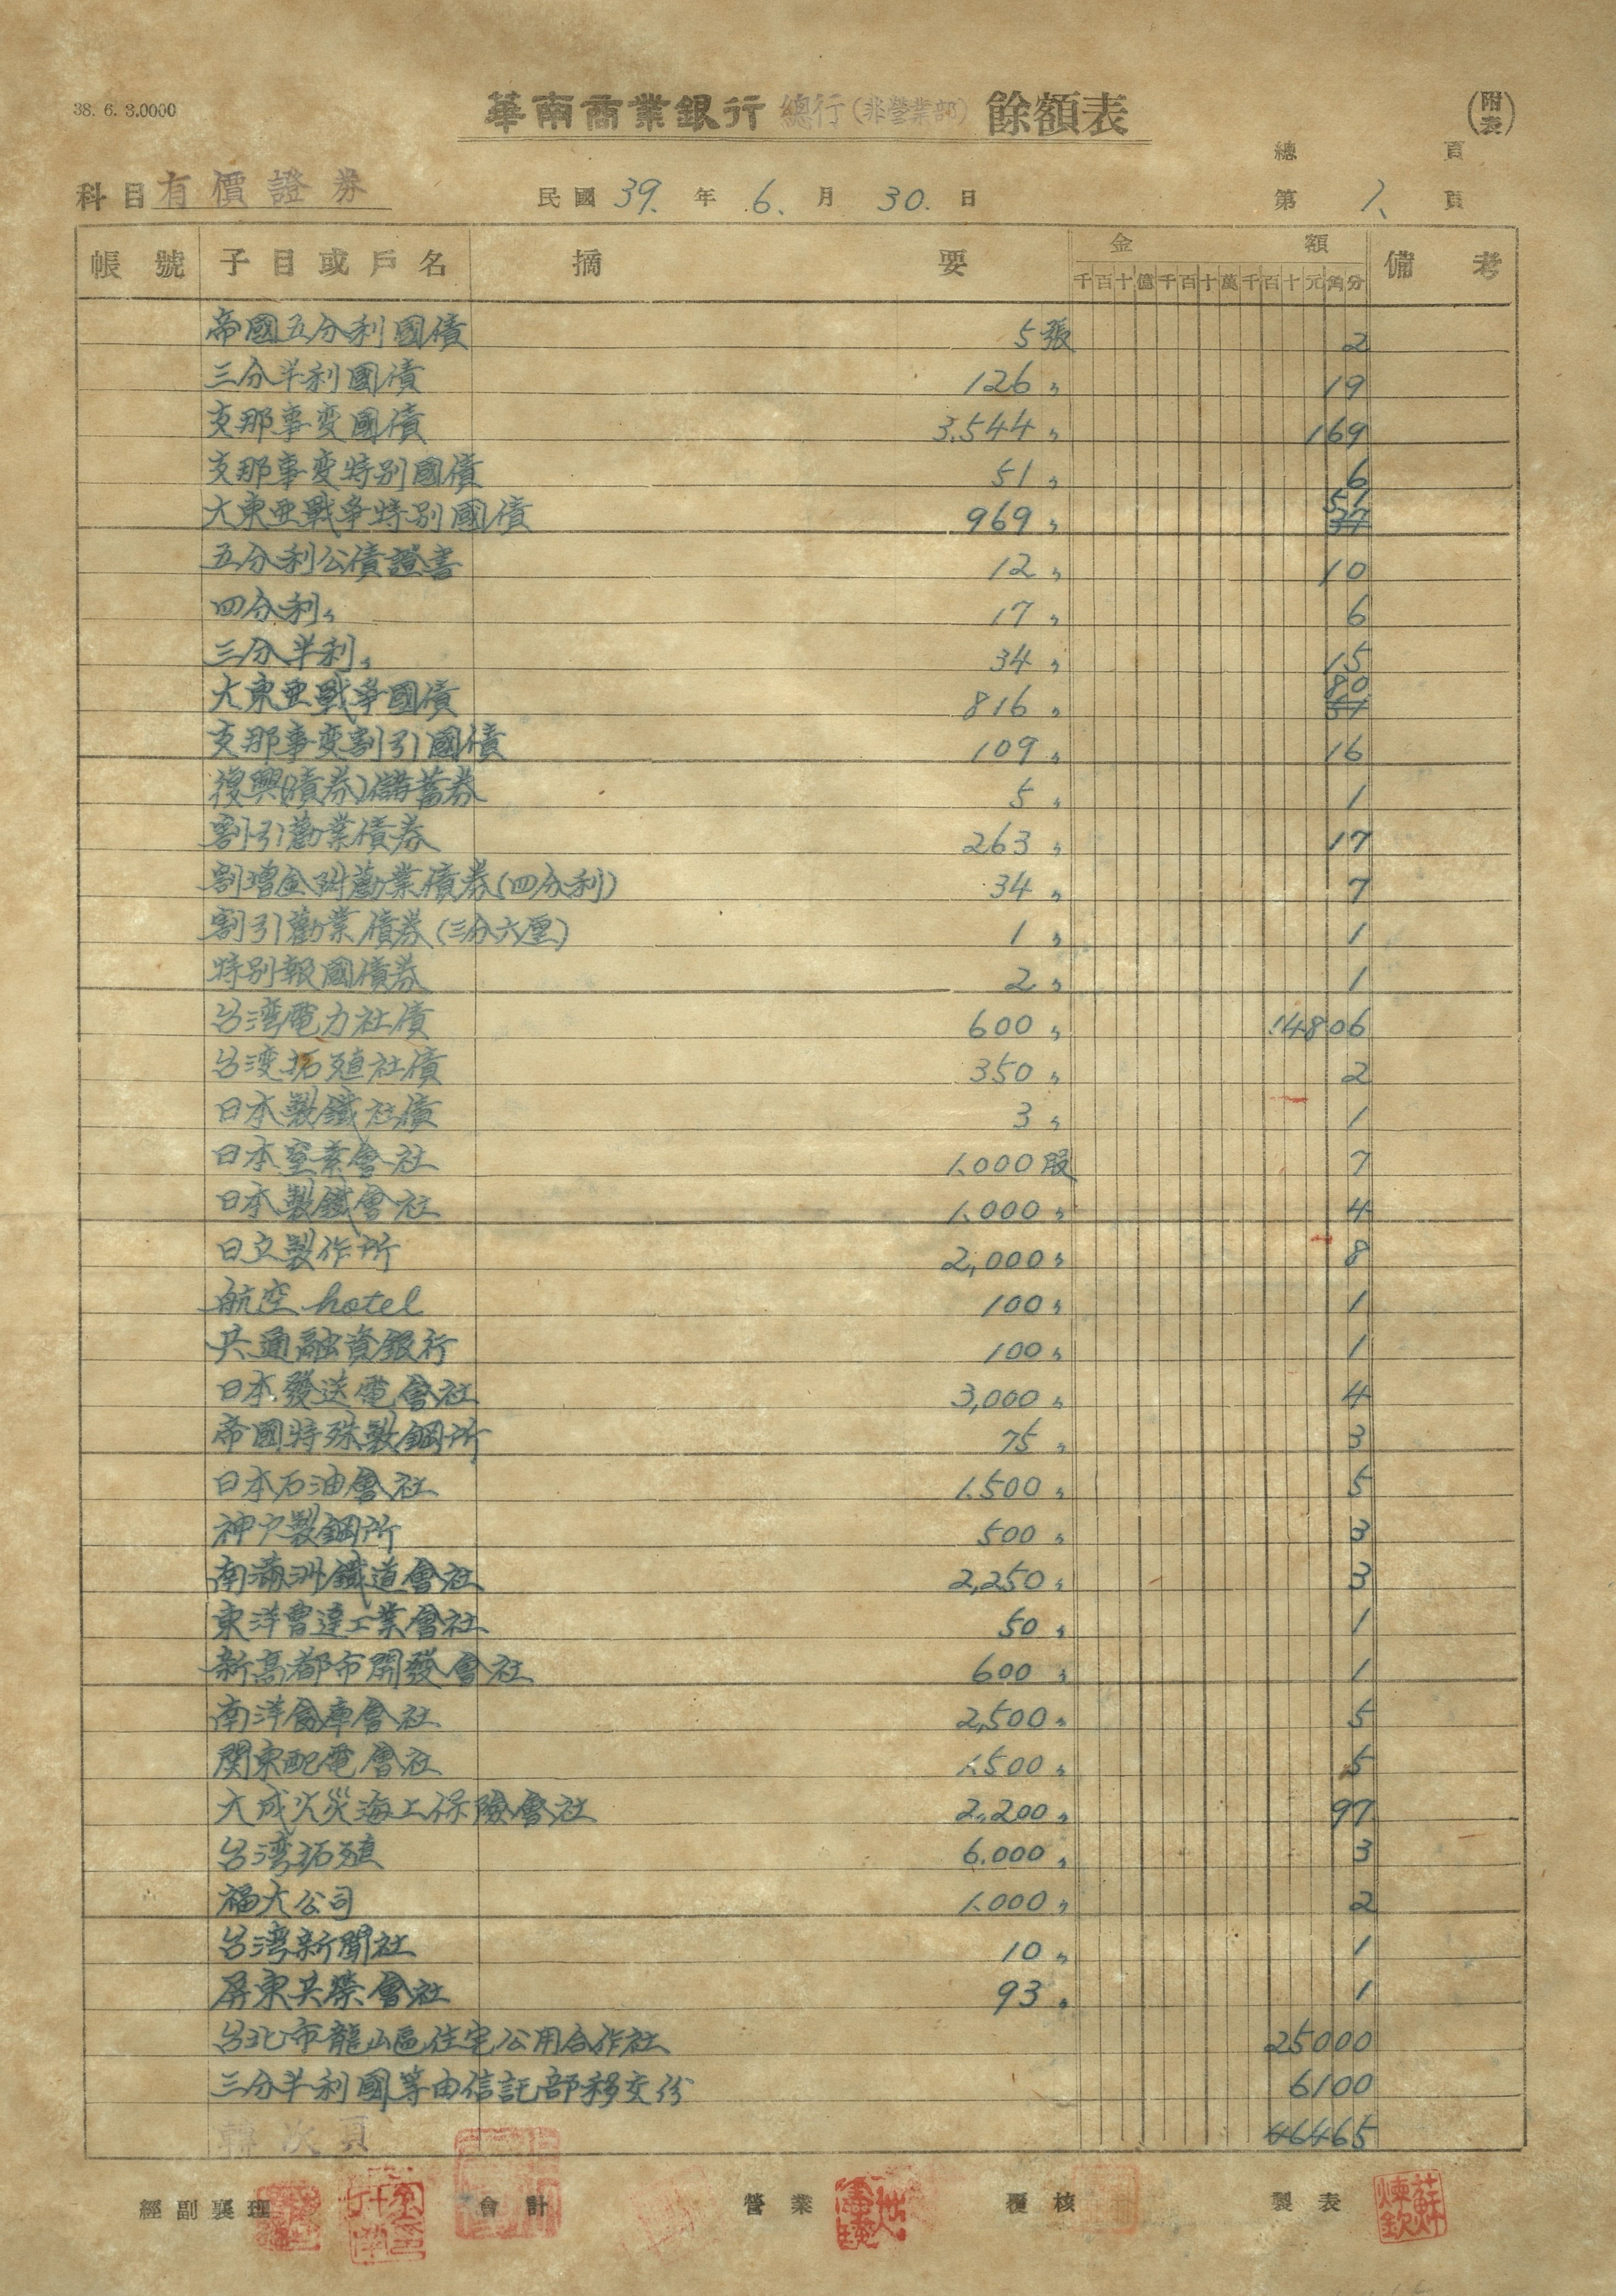 38. 6. 3.0000
華南商業銀行 總行(非營業部) 餘額表
(附表)
總 頁
科目 有價證券 民國 39. 年 6. 月 30. 日 第 1. 頁
帳號 子目或戶名 摘要 金額 備考
千百十億千百十萬千百十元角分
帝國五分利國債 5張 2
三分半利國債 126〃 19
支那事变國債 3.544〃 169
支那事变特别國債 51〃 6
大東亜戰爭特别國債 969〃 51 37
五分利公債證書 12〃 10
四分利〃 17〃 6
三分半利〃 34〃 15
大東亜戰爭國債 816〃 80 51
支那事变割引國債 109〃 16
復興(債券)儲蓄券 5〃 1
割引勸業債券 263〃 17
割增金附勸業債券(四分利) 34〃 7
割引勸業債券(三分六厘) 1〃 1
特別報國債券 2〃 1
台湾電力社債 600〃 14806
台湾拓殖社債 350〃 2
日本製鐵社債 3〃 1
日本窒素會社 1.000股 7
日本製鐵會社 1.000〃 4
日立製作所 2,000〃 8
航空 hotel 100〃 1
共通融資銀行 100〃 1
日本發送電會社 3,000〃 4
帝國特殊製鋼所 75〃 3
日本石油會社 1.500〃 5
神戶製鋼所 500〃 3
南滿洲鐵道會社 2,250〃 3
東洋曹達工業會社 50〃 1
新高都市開發會社 600〃 1
南洋倉庫會社 2,500〃 5
関東配電會社 1.500〃 5
大成火災海上保險會社 2,200〃 97
台湾拓殖 6.000〃 3
福大公司 1.000〃 2
台湾新聞社 10〃 1
屏東共榮會社 93〃 1
台北市龍山區住宅公用合作社 25000
三分半利國等由信託部移交份 6100
轉次頁 46465
經副襄理 會計 營業 覆核 製表
蘇煉欽